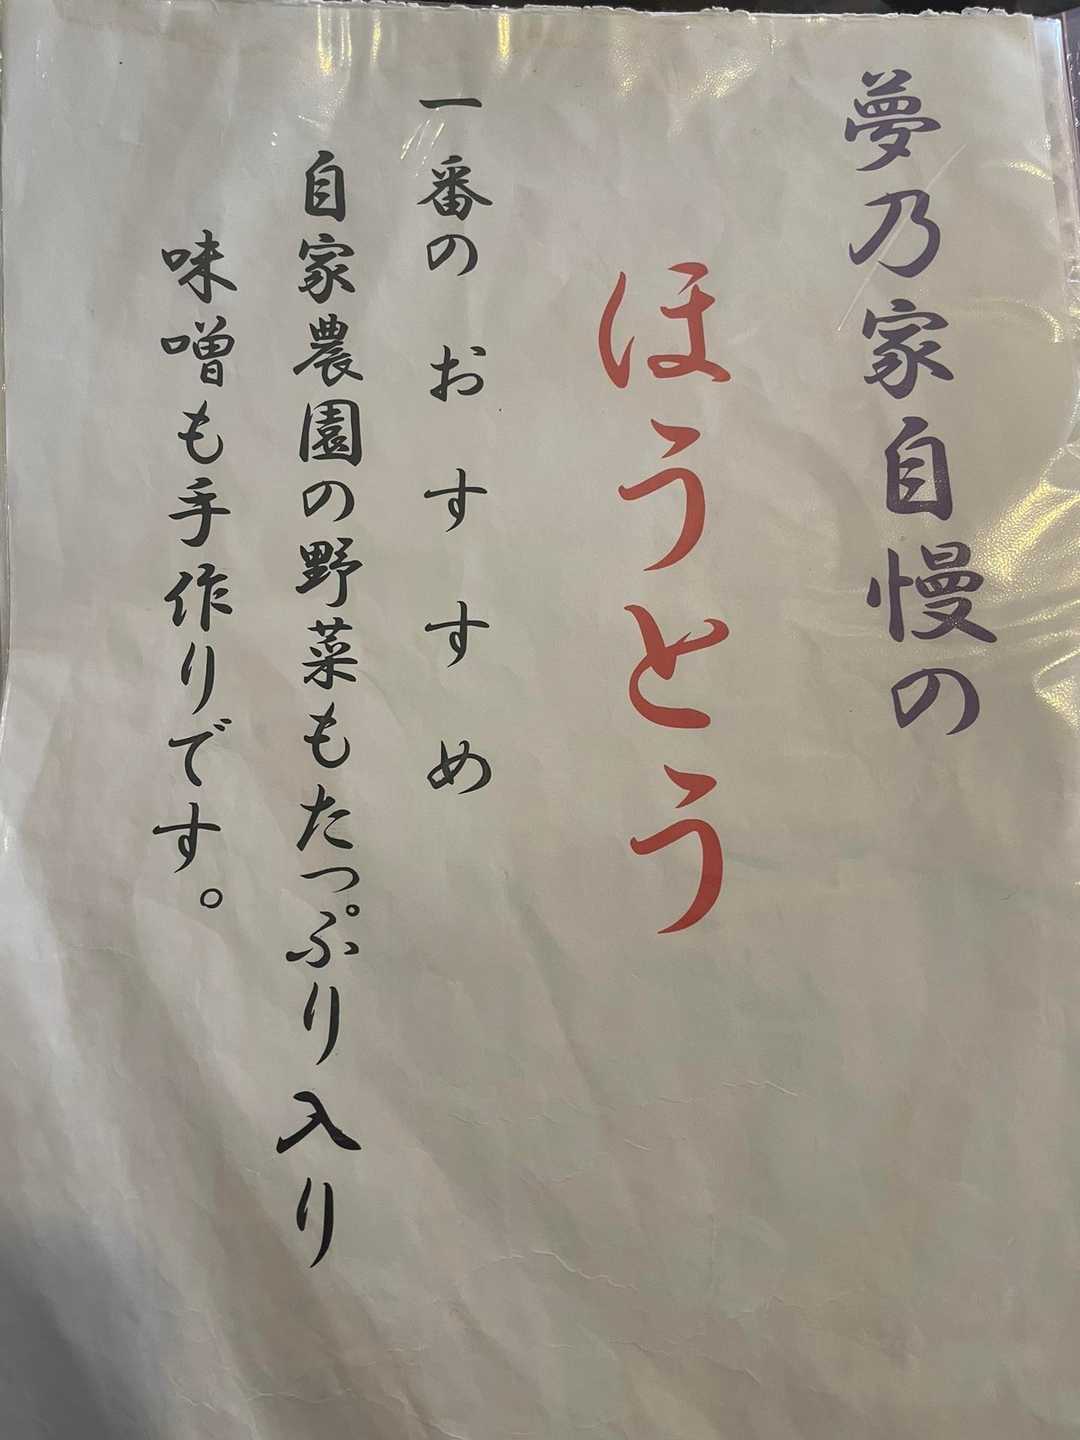 夢乃家自慢の
ほうとう
一番のおすすめ
自家農園の野菜もたっぷり入り
味噌も手作りです。